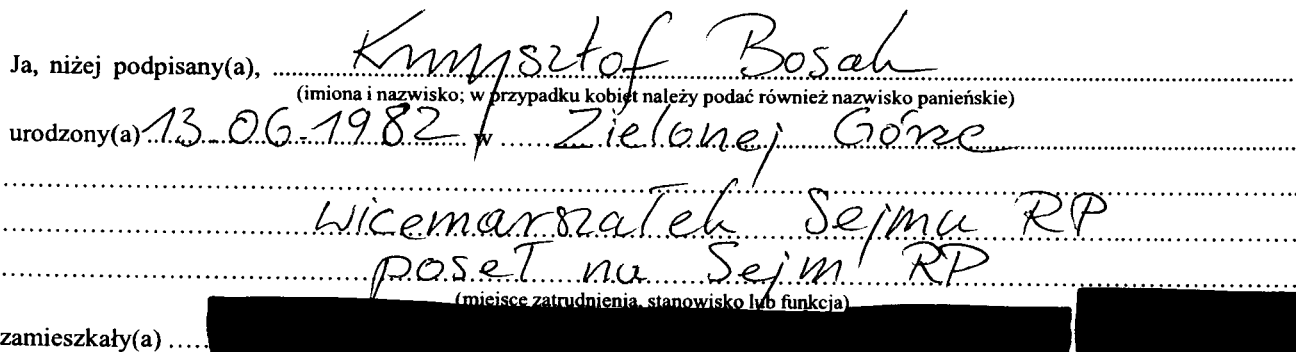 Ja, niżej podpisany(a), Krzysztof Bosak
(imiona i nazwisko; w przypadku kobiet należy podać również nazwisko panieńskie)
urodzony(a) 13.06.1982 w Zielonej Górze
wicemarszałek Sejmu RP
poseł na Sejm RP
(miejsce zatrudnienia, stanowisko lub funkcja)
zamieszkały(a)